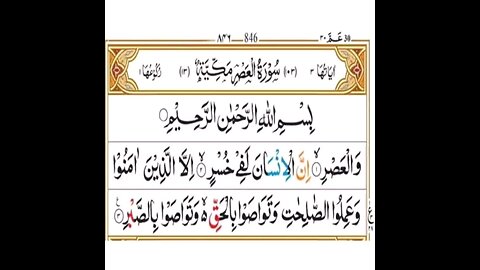 ٨٤٦ 846 عَمَّ ٣٠ 30
اٰيَاتُهَا ٣ (١٠٣) سُوْرَةُ الْعَصْرِ مَكِّيَّةٌ (١٣) رُكُوْعُهَا ١
بِسْمِ اللّٰهِ الرَّحْمٰنِ الرَّحِيْمِ
وَالْعَصْرِ ۙ۱ اِنَّ الْاِنْسَانَ لَفِيْ خُسْرٍ ۙ۲ اِلَّا الَّذِيْنَ اٰمَنُوْا
وَعَمِلُوا الصّٰلِحٰتِ وَتَوَاصَوْا بِالْحَقِّ ۙ۬ وَتَوَاصَوْا بِالصَّبْرِ ۳